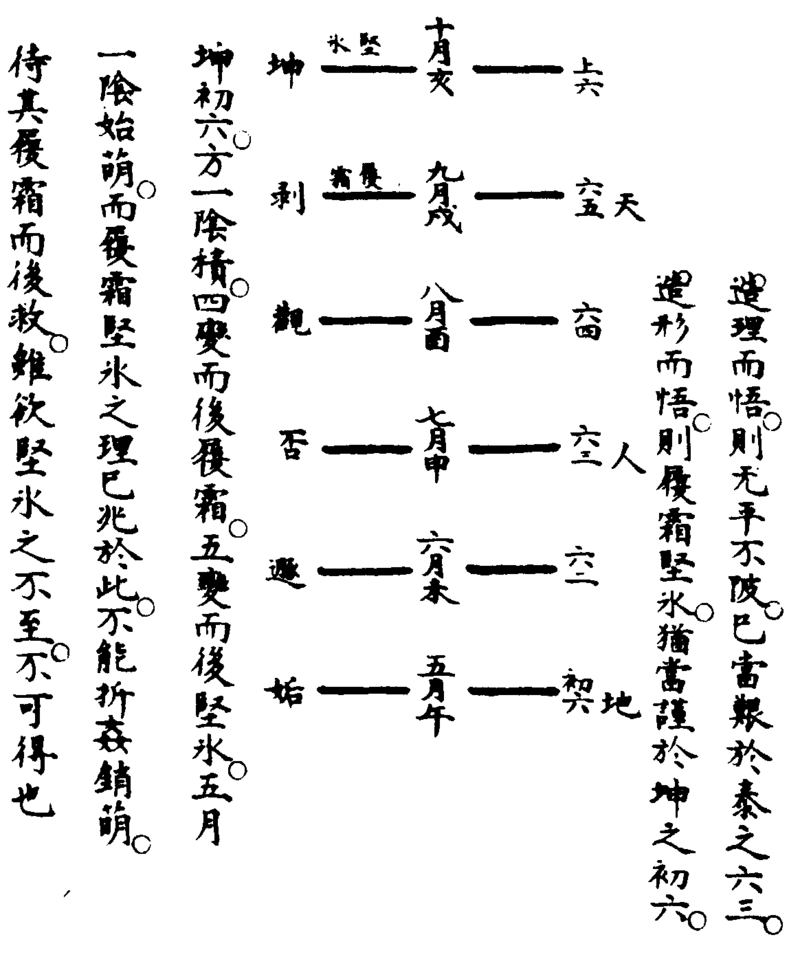 造理而悟。則无平不陂。已當艱於泰之六三。
造形而悟。則履霜堅冰。猶當謹於坤之初六。
上六 十月亥 堅冰 坤
天 六五 九月戌 履霜 剥
六四 八月酉 觀
人 六三 七月申 否
六二 六月未 遯
地 初六 五月午 姤
坤初六。方一陰積。四變而後履霜。五變而後堅冰。五月
一陰始萌。而履霜堅氷之理已兆於此。不能折姦銷萌。
待其履霜而後救。雖欲堅氷之不至。不可得也